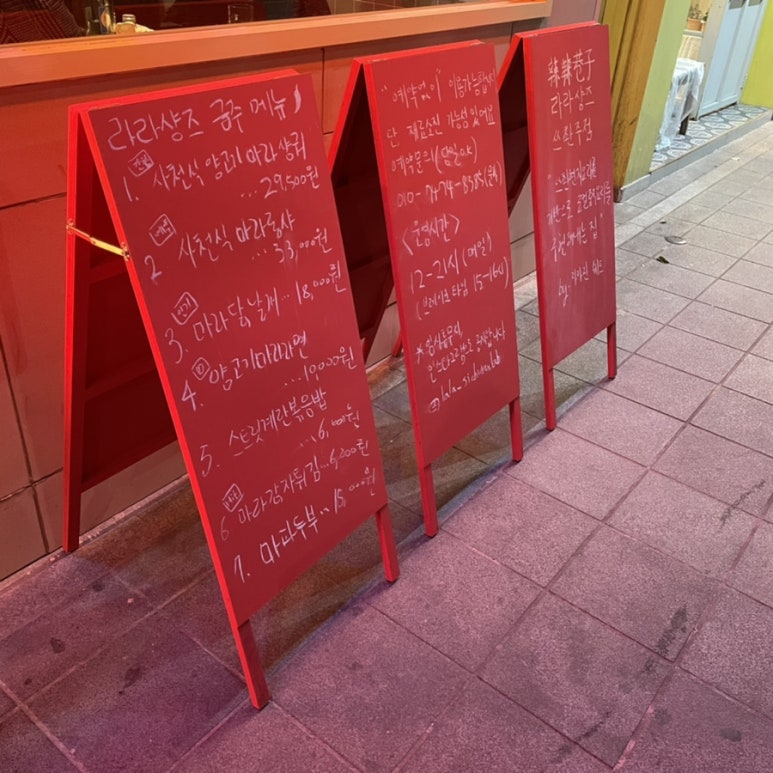 라라샹즈 금주 메뉴
1. 사천식 양고기 마라샹궈
...29,500원
2 사천식 마라롱샤
...33,000원
인기
3. 마라닭날개...18,000원
4. 양고기마라라면
...10,000원
5. 스트릿계란볶음밥
...6,000원
6 마라감자튀김...6,000원
7. 마파두부...15,000원
"예약없이" 이용가능합니다
단 재료소진 가능성 있어요
예약문의(당일만)
<운영시간>
12-21시 (매일)
(브레이크타임 15-16시)
*임시휴무시
인스타그램으로 공지합니다
辣辣巷子
라라샹즈
쓰촨주점
by.